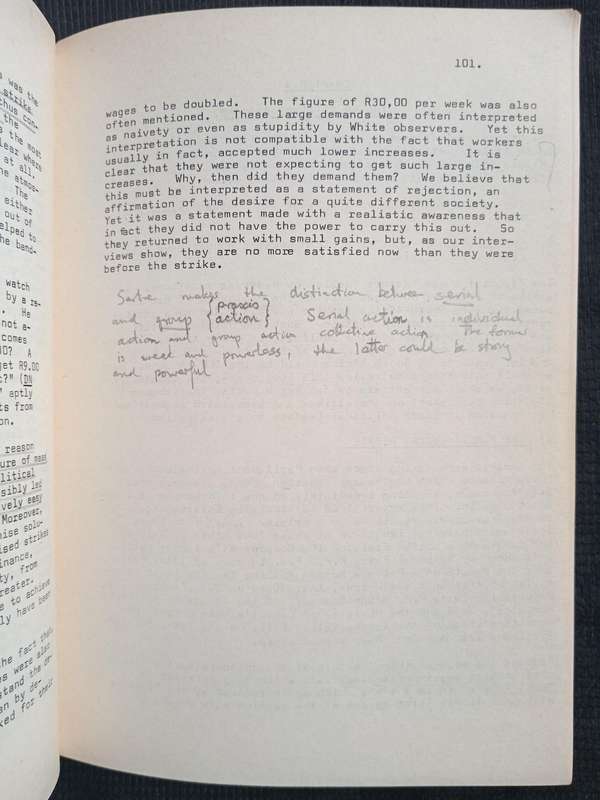 was the
strike.
thus con-
the
s the most
lear where
at all
he atmos-
The
either
out of
elped to
the band-
watch
by a re-
He
not a-
comes
30? A
get R9.00
t?" (DN
" aptly
ts from
on.
reason
ure of mass
litical
sibly led
vely easy
Moreover,
mise solu-
ised strikes
inance,
ty, from
reater.
e to achieve
ly have been
he fact that
es were also
stand the de-
an by de-
ked for their
101.
wages to be doubled. The figure of R30,00 per week was also
often mentioned. These large demands were often interpreted
as naivety or even as stupidity by White observers. Yet this
interpretation is not compatible with the fact that workers
usually in fact, accepted much lower increases. It is
clear that they were not expecting to get such large in-
creases. Why, then did they demand them? We believe that
this must be interpreted as a statement of rejection, an
affirmation of the desire for a quite different society.
Yet it was a statement made with a realistic awareness that
in fact they did not have the power to carry this out. So
they returned to work with small gains, but, as our inter-
views show, they are no more satisfied now than they were
before the strike.
Sartre makes the distinction between serial
and group {praxis
action} Serial action is individual
action and group action collective action. The former
is weak and powerless, the latter could be strong
and powerful